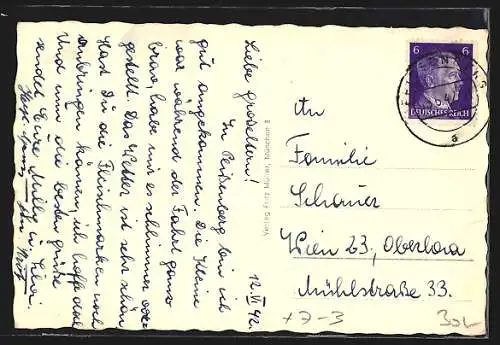 12. VI 42.
Liebe Großeltern!
In Peißenberg bin ich
gut angekommen. Die Kleine
war während der Fahrt ganz
brav, habe mir es schlimmer vor
gestellt. Das Wetter ist sehr schön
Hast Du die Fleischmarken noch
anbringen können, ich hoffe doch
Und nun die besten Grüße
sendet Eure Milly u.
Verlag Fritz Müller, München 2
6 6
DEUTSCHES REICH
a
An
Familie
Schauer
Wien 23., Oberlaa
Mühlstraße 33.